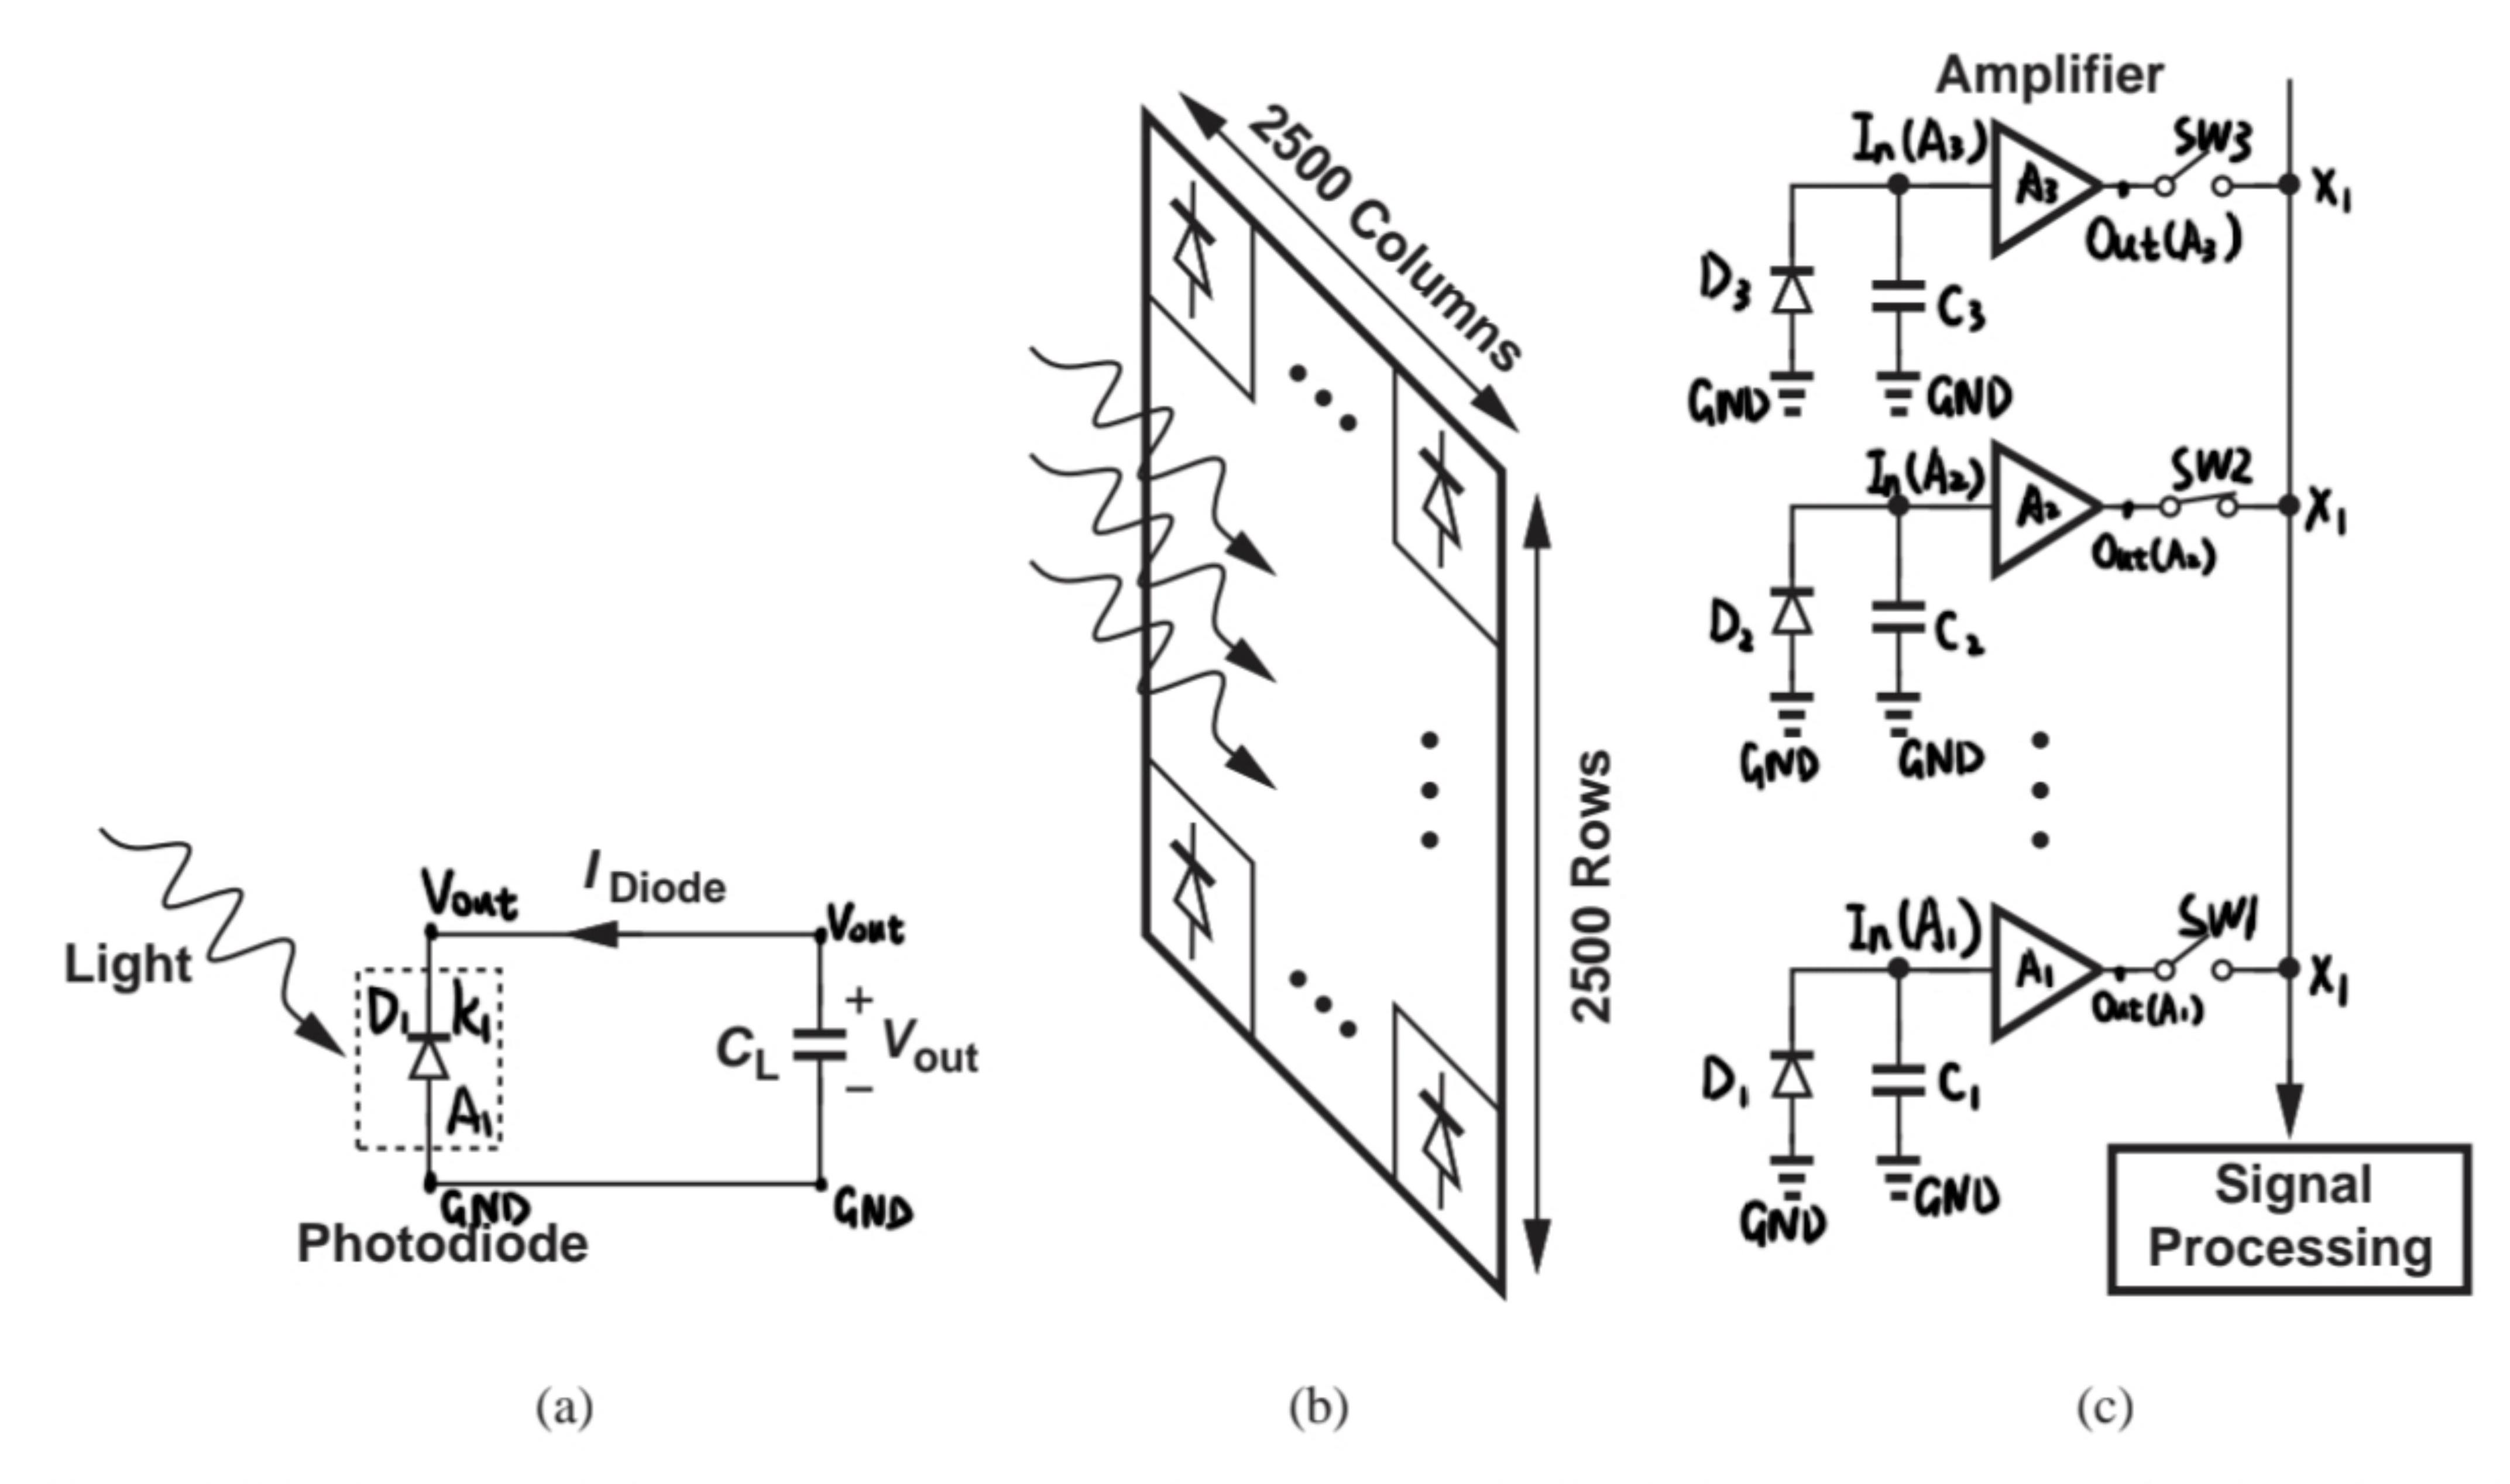 Light
Vout
I Diode
Vout
D1 K1
A1
CL
+
Vout
−
GND
GND
Photodiode
(a)
2500 Columns
2500 Rows
(b)
Amplifier
In(A3)
A3
SW3
X1
Out(A3)
D3
C3
GND
GND
In(A2)
A2
SW2
X1
Out(A2)
D2
C2
GND
GND
In(A1)
A1
SW1
X1
Out(A1)
D1
C1
GND
GND
Signal
Processing
(c)